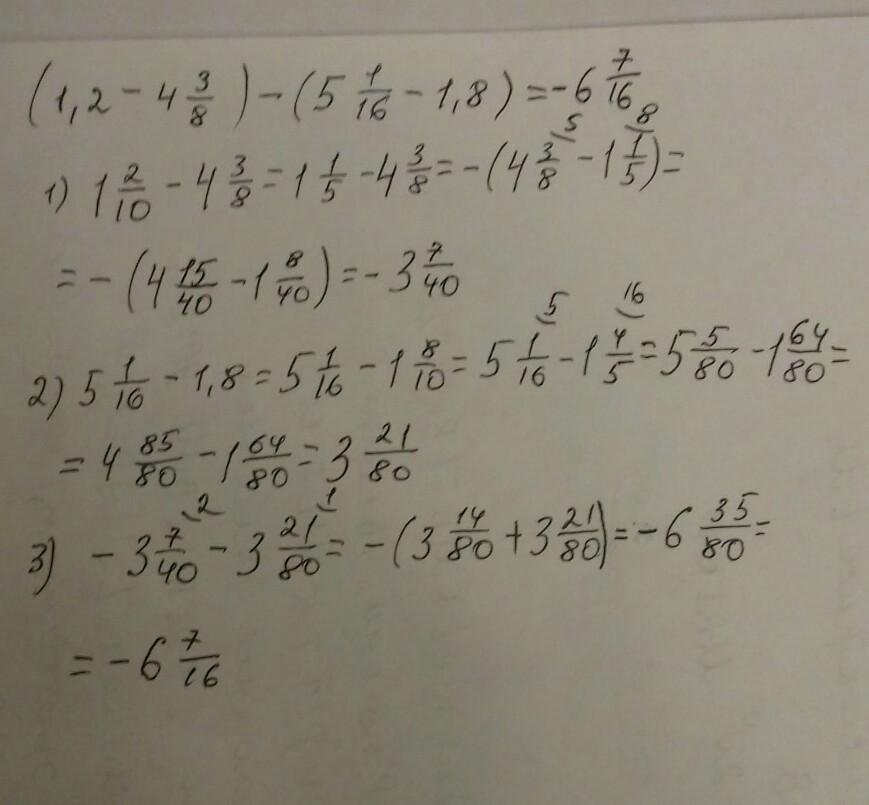 (1,2 - 4 3/8) - (5 1/16 - 1,8) = -6 7/16
1) 1 2/10 - 4 3/8 = 1 1/5 - 4 3/8 = -(4 3/8 (5 - 1 1/5 (8) =
= -(4 15/40 - 1 8/40) = -3 7/40
2) 5 1/16 - 1,8 = 5 1/16 - 1 8/10 = 5 1/16 (5 - 1 4/5 (16 = 5 5/80 - 1 64/80 =
= 4 85/80 - 1 64/80 = 3 21/80
3) -3 7/40 (2 - 3 21/80 (1 = -(3 14/80 + 3 21/80) = -6 35/80 =
= -6 7/16